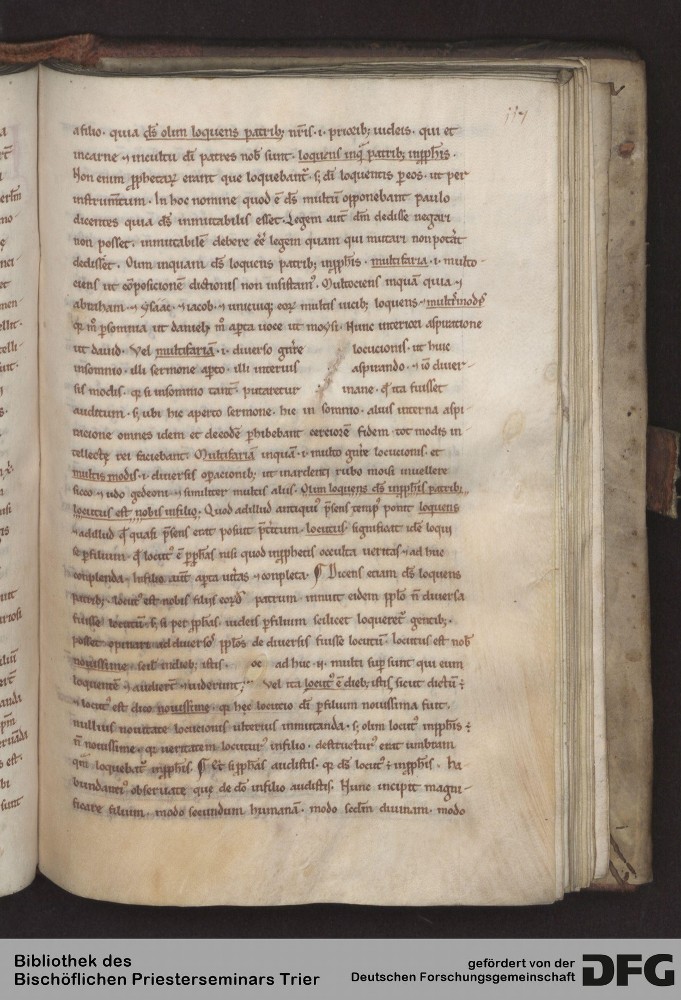 117
afilio · quia d̅s olim loquens patrib; nr̅is · i · priorib; iudeis · qui et
incarne ⁊ incultu di̅ patres nob̅ sunt · loquens inq̅ patrib; inp̅phis ·
Non enim p̅phetaꝝ erant que loquebant᷑ · s; di̅ loquentis p̲eos · ut per
instrum̅tum · In hoc nomine quod e̅ d̅s multu̅ opponebant paulo
dicentes quia d̅s inmutabilis esset · Legem aut̅ dm̅ dedisse negari
non posset · inmutabile̅ debere e̅e̅ legem quam qui mutari non potat̅
dedisset · Olim inquam d̅s loquens patrib; inp̅phis · multifaria̅ · i · multo-
ciens ut co̅posicione̅ dictionis non insistam᷒ · Multociens inqua̅ quia ⁊
abraham · ⁊ ysaac · ⁊ iacob · ⁊ unicuiq; eoꝝ multis uicib; loquens ⁊ multi̅smod᷒
qꝛ m̊ p̲somnia ut danieli · m̊ ap̲ta uoce ut moysi · Nunc interiori aspiratione
ut dauid · Vel multifaria̅ · i · diuerso gn̅re locucionis · ut huic
insomnio · illi sermone ap̲to · illi interius aspirando · ⁊ io̅ diuer-
sis modis · qꝛ si insomnio tant᷒ · putaretur inane · qd̅ ita fuisset
auditum · s; ubi hic aperto sermone · hic in somnio · alius interna aspi
racione omnes idem et deeode̅ p̲hibebant cerciore̅ fidem tot modis in-
tellecte̜ rei faciebant · Multifaria̅ inqua̅ · i · multo gn̅re locucionis · et
multis modis · i · diuersis op̲acionib; · ut inardenti rubo moisi inuellere
sicco ⁊ udo gedeoni · ⁊ similiter multis aliis · Olim loquens d̅s inp̅phis patrib;
locutus est nobis infilio · Quod adillud antiqui᷒ p̅sens temp᷒ ponit loquens
⁊ adillud qd̅ quasi p̅sens erat posuit p̅t̅itum · locutus · significatur ide̅ loqui
se p̲filium · qd̅ locut᷒ e̅ p̲p̅phas nisi quod inp̅phetis occulta ueritas ⁊ ad huc
conplenda · infilio aut̅ ap̲ta ue̅ritas ⁊ conpleta · ¶ Dicens eciam d̅s loquens
patrib; · locut᷒ est nobis filiis eoꝝd᷒ patrum · innuit eidem p̅plo̅ n̅ diuersa
fuisse locutu̅ · s; si per p̅phas · iudeis p̲filium scilicet loqueret᷑ gentib; ·
posset opinari addiuerso᷒ p̅plos de diuersis fuisse locutu̅ · locutus est nob̅
nouissime · scil̅ indieb; istis · ad huc · ii · multi sup̲ sunt qui eum
loquente̅ ⁊ audier̅t ⁊ uiderunt · Vel ita locut᷒ e̅ dieb; istis sicut dictu̅ ÷
⁊ locut᷒ est dico nouissime · qꝛ hec̜ locutio di̅ p̲filium nouissima fuit ·
nullius nouitate locucionis ulterius inmutanda · s; olim locut᷒ inp̅phis ÷
n̅ nouissime · qꝛ ueritatem locutur᷒ infilio · destructur᷒ erat umbram
qua̅ loquebat᷑ inp̅phis · ¶ Et si p̅phas audistis · qꝛ d̅s locut᷒ ÷ inp̅phis · ha-
bundanti᷒ obseruate que de do̅ infilio audistis · Nunc incipit magni-
ficare filium · modo secundum humana̅ · modo scdm̅ diuinam · modo
Bibliothek des
Bischöflichen Priesterseminars Trier
gefördert von der
Deutschen Forschungsgemeinschaft
DFG